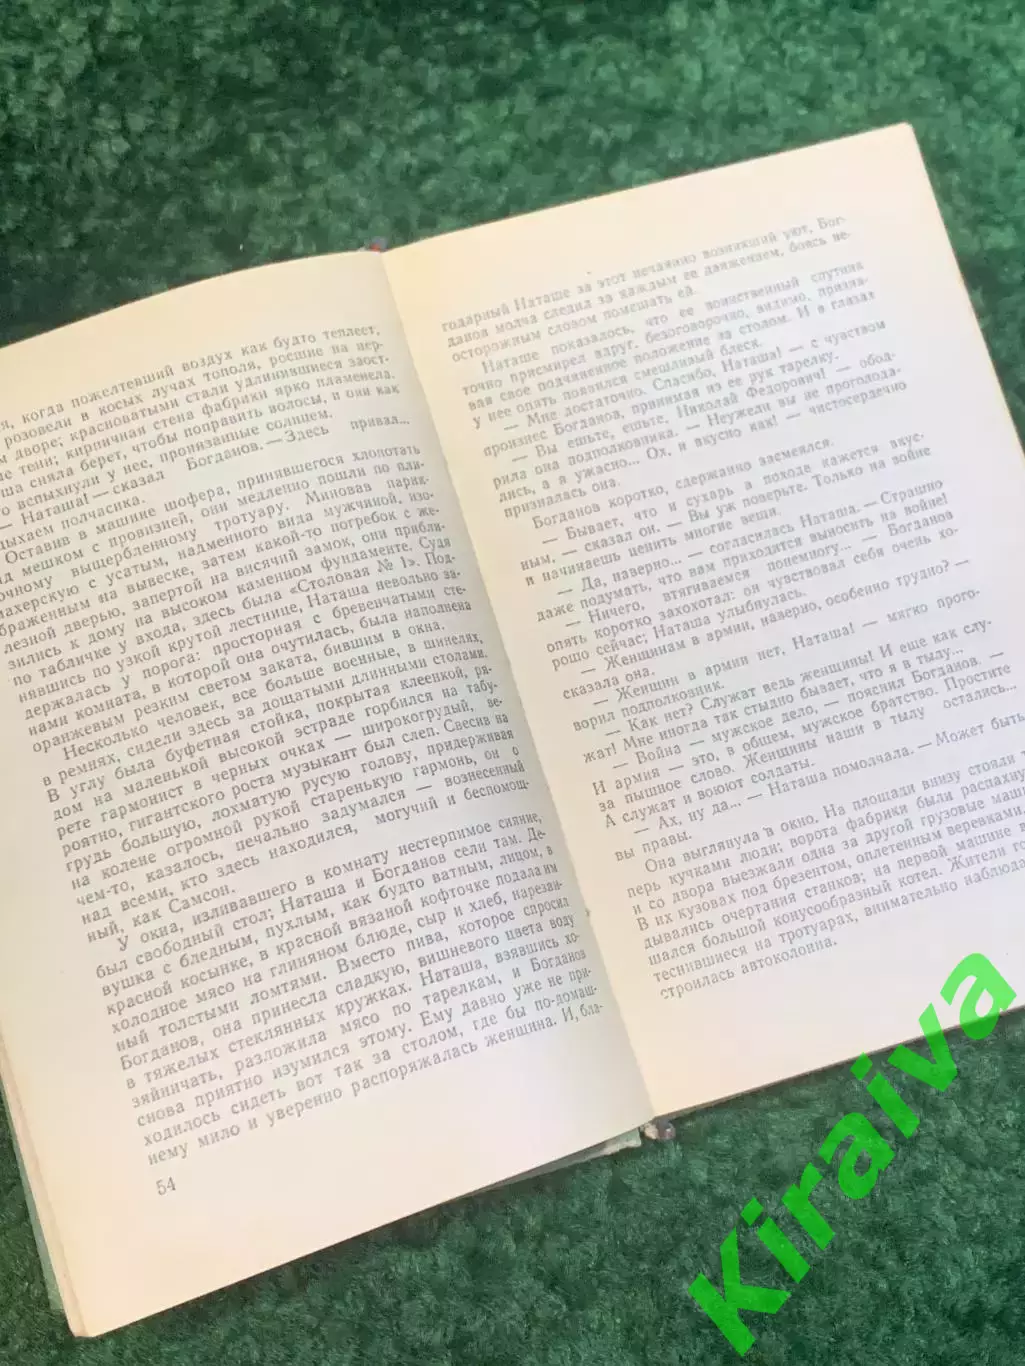 я, когда пожелтевший воздух как будто теплеет,
розовели в косых лучах тополя, росшие на пер-
м дворе; красноватыми стали удлинившиеся заост-
е тени; кирпичная стена фабрики ярко пламенела.
ша сняла берет, чтобы поправить волосы, и они как
о вспыхнули у нее, пронзанные солнцем.
— Наташа! — сказал Богданов. — Здесь привал...
дыхаем полчасика.
Оставив в машине шофера, принявшегося хлопотать
д мешком с провизией, они медленно пошли по пли-
очному выщербленному тротуару. Миновав парик-
махерскую с усатым, надменного вида мужчиной, изо-
браженным на вывеске, затем какой-то погребок с же-
лезной дверью, запертой на висячий замок, они прибли-
зились к дому на высоком каменном фундаменте. Судя
по табличке у входа, здесь была «Столовая № 1». Под-
нявшись по узкой крутой лестнице, Наташа невольно за-
держалась у порога: просторная с бревенчатыми сте-
нами комната, в которой она очутилась, была наполнена
оранжевым резким светом заката, бившим в окна.
Несколько человек, все больше военные, в шинелях,
в ремнях, сидели здесь за дощатыми длинными столами.
В углу была буфетная стойка, покрытая клеенкой, ря-
дом на маленькой высокой эстраде горбился на табу-
рете гармонист в черных очках — широкогрудый, ве-
роятно, гигантского роста музыкант был слеп. Свесив на
грудь большую, лохматую русую голову, придерживая
на колене огромной рукой старенькую гармонь, он о
чем-то, казалось, печально задумался — вознесенный
над всеми, кто здесь находился, могучий и беспомощ-
ный, как Самсон.
У окна, изливавшего в комнату нестерпимое сияние,
был свободный стол; Наташа и Богданов сели там. Де-
вушка с бледным, пухлым, как будто ватным, лицом, в
красной косынке, в красной вязаной кофточке подала им
холодное мясо на глиняном блюде, сыр и хлеб, нарезан-
ный толстыми ломтями. Вместо пива, которое спросил
Богданов, она принесла сладкую, вишневого цвета воду
в тяжелых стеклянных кружках. Наташа, взявшись хо-
зяйничать, разложила мясо по тарелкам, и Богданов
снова приятно изумился этому. Ему давно уже не при-
ходилось сидеть вот так за столом, где бы по-домаш-
нему мило и уверенно распоряжалась женщина. И, бла-
54
годарный Наташе за этот нечаянно возникший уют, Бог-
данов молча следил за каждым ее движением, боясь не-
осторожным словом помешать ей.
Наташе показалось, что ее воинственный спутник
точно присмирел вдруг, безоговорочно, видимо, призна-
вая свое подчиненное положение за столом. И в глазах
у нее опять появился смешливый блеск.
— Мне достаточно. Спасибо, Наташа! — с чувством
произнес Богданов, принимая из ее рук тарелку.
— Вы ешьте, ешьте, Николай Федорович! — обод-
рила она подполковника. — Неужели вы не проголода-
лись, а я ужасно... Ох, и вкусно как! — чистосердечно
призналась она.
Богданов коротко, сдержанно засмеялся.
— Бывает, что и сухарь в походе кажется вкус-
ным, — сказал он. — Вы уж поверьте. Только на войне
и начинаешь ценить многие вещи.
— Да, наверно... — согласилась Наташа. — Страшно
даже подумать, что вам приходится выносить на войне!
— Ничего, втягиваемся понемногу... — Богданов
опять коротко захохотал: он чувствовал себя очень хо-
рошо сейчас; Наташа улыбнулась.
— Женщинам в армии, наверно, особенно трудно? —
сказала она.
— Женщин в армии нет, Наташа! — мягко прого-
ворил подполковник.
— Как нет? Служат ведь женщины! И еще как слу-
жат! Мне иногда так стыдно бывает, что я в тылу...
— Война — мужское дело, — пояснил Богданов. —
И армия — это, в общем, мужское братство. Простите
за пышное слово. Женщины наши в тылу остались...
А служат и воюют солдаты.
— Ах, ну да... — Наташа помолчала. — Может быть,
вы правы.
Она выглянула в окно. На площади внизу стояли т
перь кучками люди; ворота фабрики были распахну
и со двора выезжали одна за другой грузовые маши
В их кузовах под брезентом, оплетенным веревками,
дывались очертания станков; на первой машине в
шался большой конусообразный котел. Жители го
теснившиеся на тротуарах, внимательно наблюда
строилась автоколонна.
Kiraiva